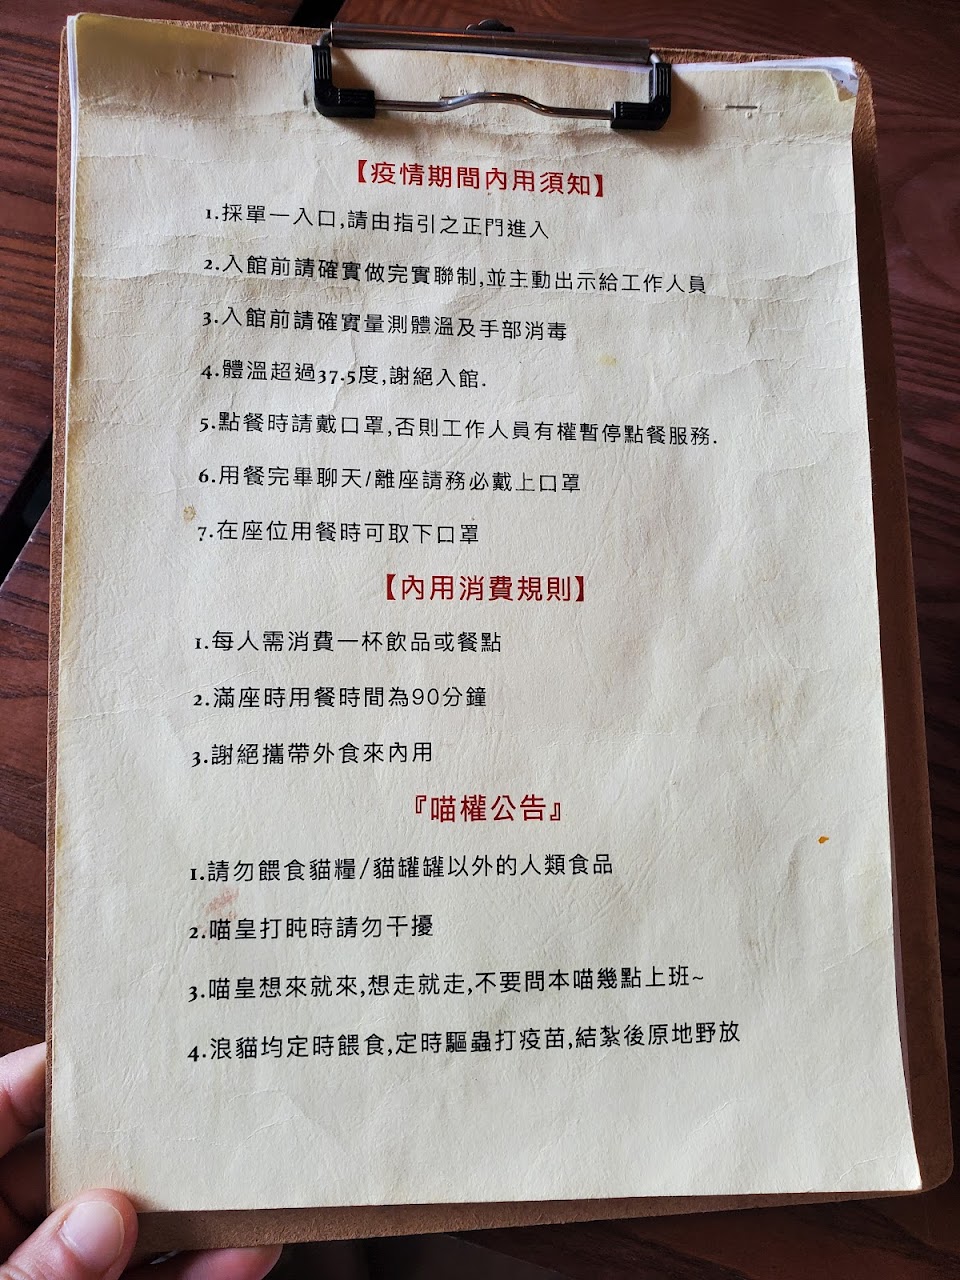 【疫情期間內用須知】
1.採單一入口,請由指引之正門進入
2.入館前請確實做完實聯制,並主動出示給工作人員
3.入館前請確實量測體溫及手部消毒
4.體溫超過37.5度,謝絕入館.
5.點餐時請戴口罩,否則工作人員有權暫停點餐服務.
6.用餐完畢聊天/離座請務必戴上口罩
7.在座位用餐時可取下口罩
【內用消費規則】
1.每人需消費一杯飲品或餐點
2.滿座時用餐時間為90分鐘
3.謝絕攜帶外食來內用
『喵權公告』
1.請勿餵食貓糧/貓罐罐以外的人類食品
2.喵皇打盹時請勿干擾
3.喵皇想來就來,想走就走,不要問本喵幾點上班~
4.浪貓均定時餵食,定時驅蟲打疫苗,結紮後原地野放